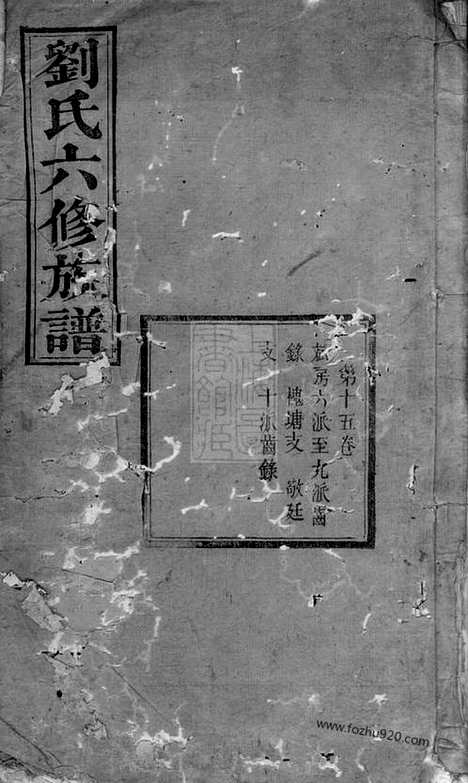 劉氏六修族譜
第十五卷
房六派至九派齒
錄 槐塘支 敬廷
支 十派齒錄
www.fozhu920.com